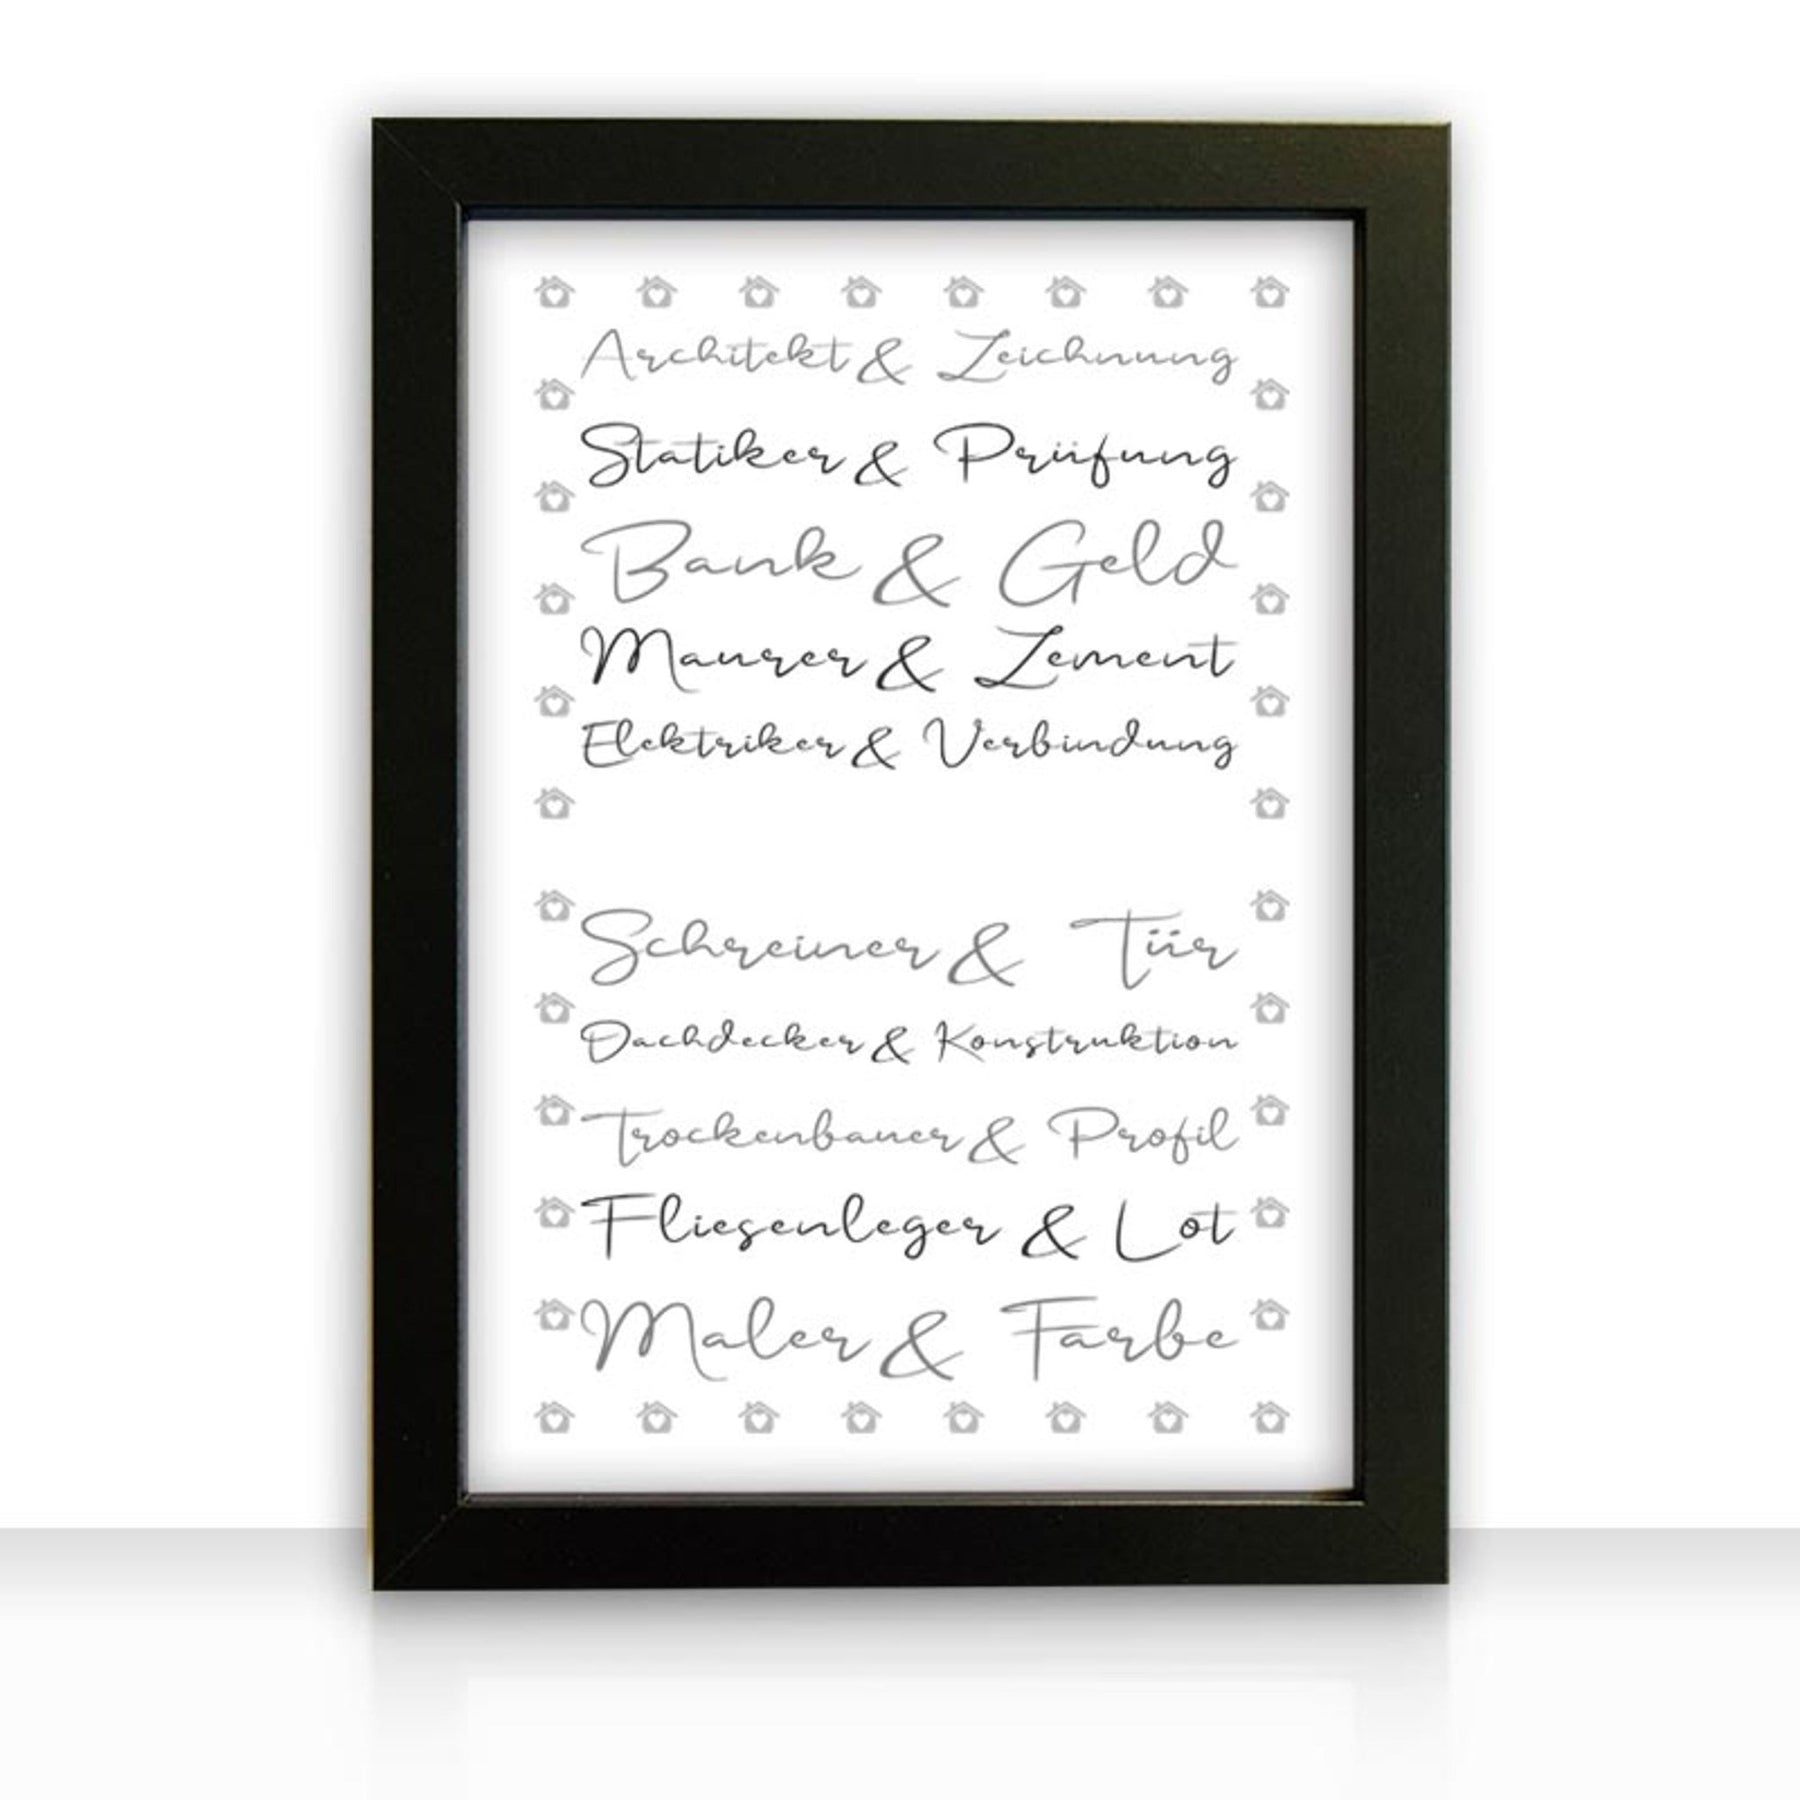 Architekt & Zeichnung
Statiker & Prüfung
Bank & Geld
Maurer & Zement
Elektriker & Verbindung
Schreiner & Tür
Dachdecker & Konstruktion
Trockenbauer & Profil
Fliesenleger & Lot
Maler & Farbe